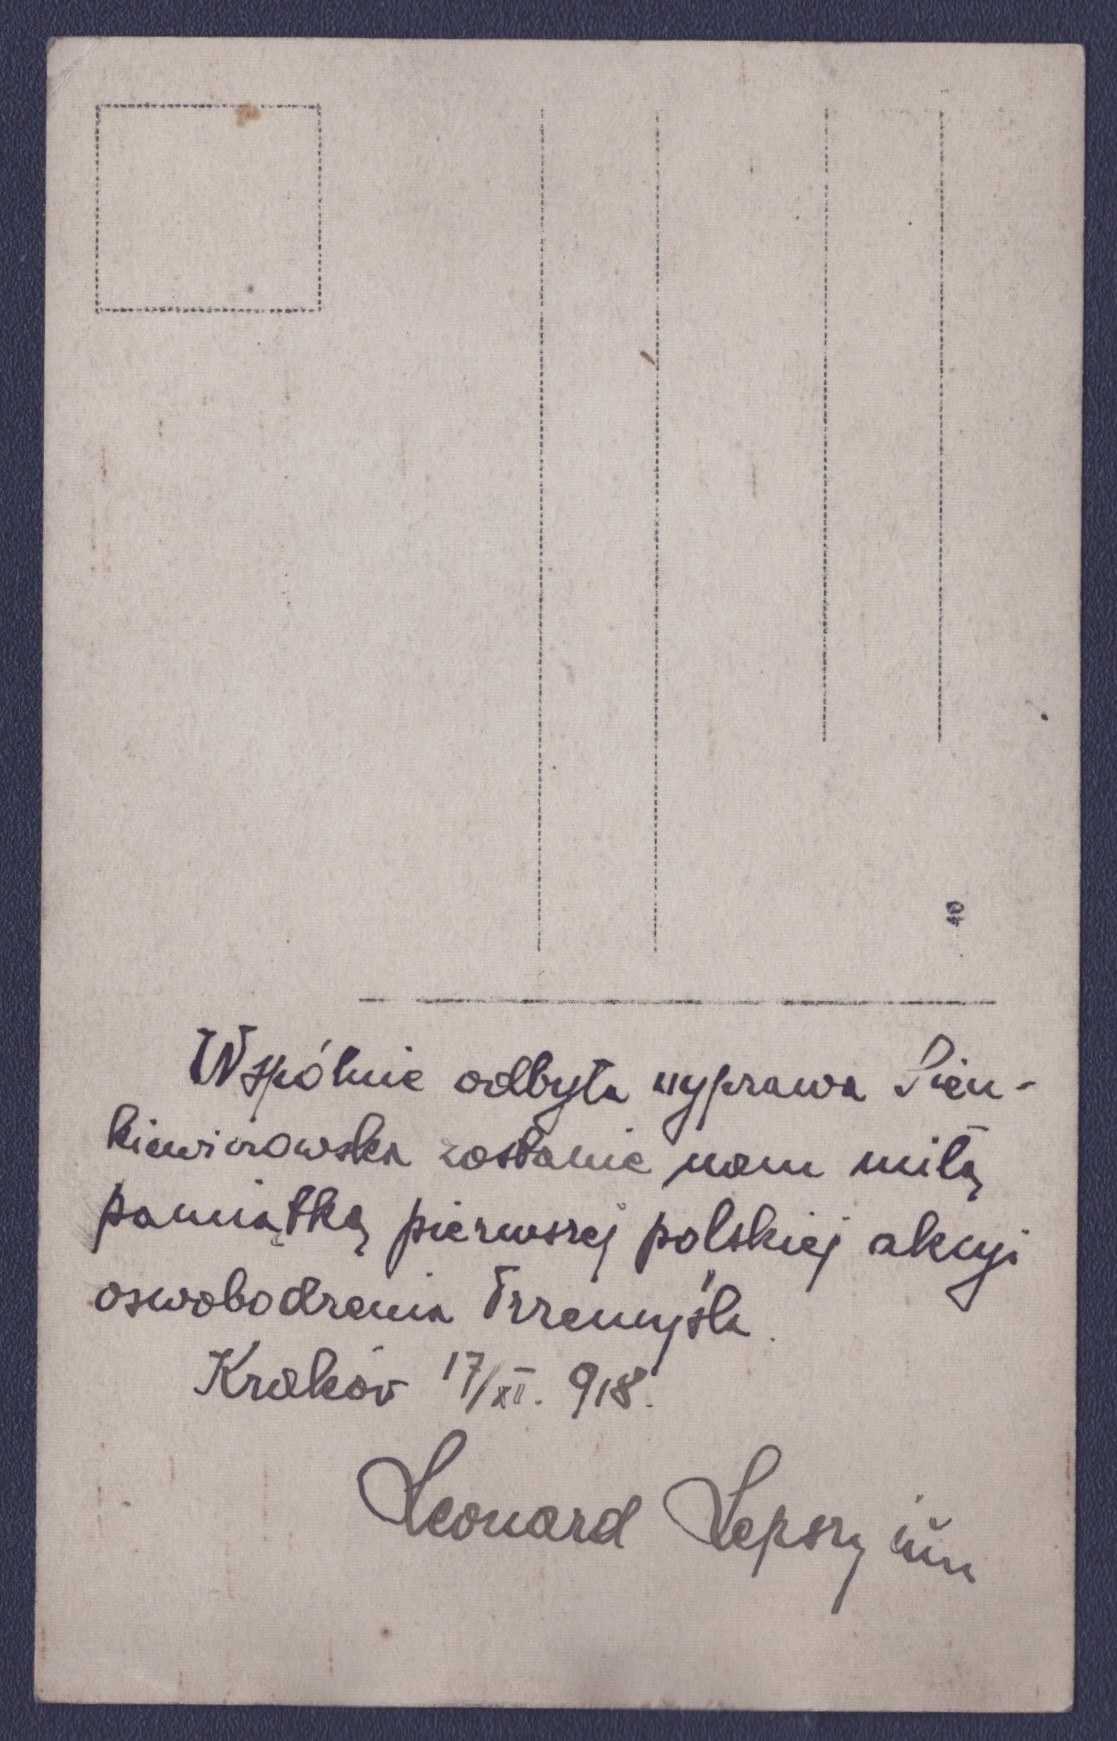 40
Wspólnie odbyta wyprawa Sien-
kiewiczowska zostanie nam miłą
pamiątką pierwszej polskiej akcyi
oswobodzenia Przemyśla.
Kraków 17/XI. 918.
Leonard Lepszy jun